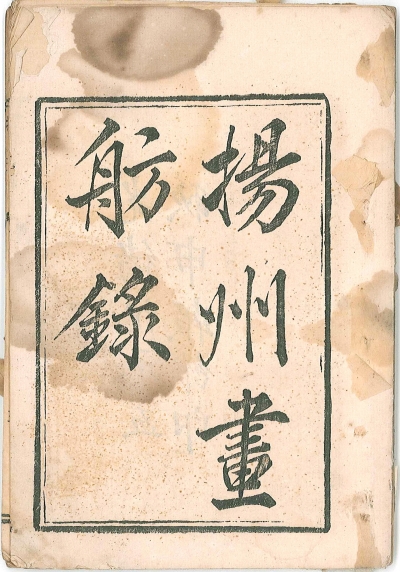 揚州畫
舫錄